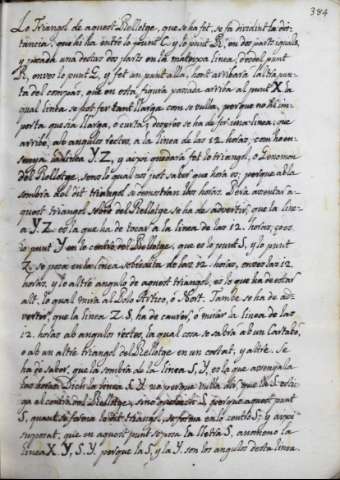 384
Lo Triangol de aquest Rellotge, que se ha fet, se fa dividint la dis-
tancia, que hi ha entre lo punt C, y lo punt R, en dos parts iguals,
y posada una destas dos parts en la mateixa linea, desdel punt
R, enves lo punt C, y fet un punt alla, hont arribara la altra pun-
ta del compas, que en esta figura passada arriba al punt X la
qual linea se pot fer tant llarga com se vulla, perque no hi im-
porta que sia llarga, o curta, despres se ha de fer una linea, que
arribe, ab angulos rectos, a la linea de las 12 horas, com ho en-
senya la linea Y. Z, y axi quedara fet lo triangol, o Gnomon
del Rellotge, sens lo qual no pot saber que hora es; perque ab la
sombra del dit triangol a coneixer las horas. Pera assentar a-
quest triangol sobre del Rellotge se ha de advertir, que la line-
a Y. Z. es la que ha de tocar a la linea de las 12 horas, ço es
lo punt Y en lo centro del Rellotge, que es lo punt S, y lo punt
Z se posa en la linea sobredita de las 12 horas, enves las 12
horas, y lo altre angulo de aquest triangol, es lo que ha de estar
alt, lo qual mira al Polo Artico, o Nort. Tambe se ha de ad-
vertir, que la linea Z S, ha de caurer, o mirar la linea de las
12 horas ab angulos rectos, la qual cosa se sabra ab un Cartabó,
o ab un altre triangol del Rellotge en un costat, y altre. Se
ha de saber, que la sombra de la linea S, Y, es la que assenyala
las horas. Dich la linea S. Y no perque vulla dir, que la S estiga
al centro del Rellotge, sino perque aquest punt
S, quant se forma lo dit triangol, se forma en lo centre S; y axi
suposat, que en aquest punt se posa la lletra S, anomeno la
linea X Y, S. Y. perque la S, y la Y son los angulos desta linea.